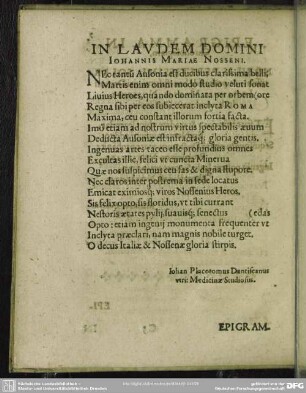 IN LAVDEM DOMINI
IOHANNIS MARIAE NOSSENI.
NEc tantũ Ausonia est ducibus clarissima belli,
Martis enim omni modò studio veluti sonat (ore
Livius Heroes, quãdo dominata per orbem
Regna sibi per eos subiecerat inclyta ROMA
Maxima, ceu constant illorum fortia facta.
Imò etiam ad nostrum virtus spectabilis ævum
Dedicta Ausoniæ est infractaq; gloria gentis.
Ingenuas artes taceo esse profundius omnes
Excultas illic, felici vt cuncta Minerva
Quæ nos suspicimus ceu fas & digna stupore.
Nec claros inter postrema in sede locatus
Emicat eximiosq; viros Nossenius Heros.
Sis felix opto, sis floridus, vt tibi currant
Nestoris ætates pylij, suavisq; senectus (edas
Opto: etiam ingenij monumenta frequenter vt
Inclyta præclari, nam magnis nobile turget.
O decus Italiæ & Nossenæ gloria stirpis.
Iohan Placotomus Dantiscanus
utri: Medicinæ Studiosus.
EPIGRAM.